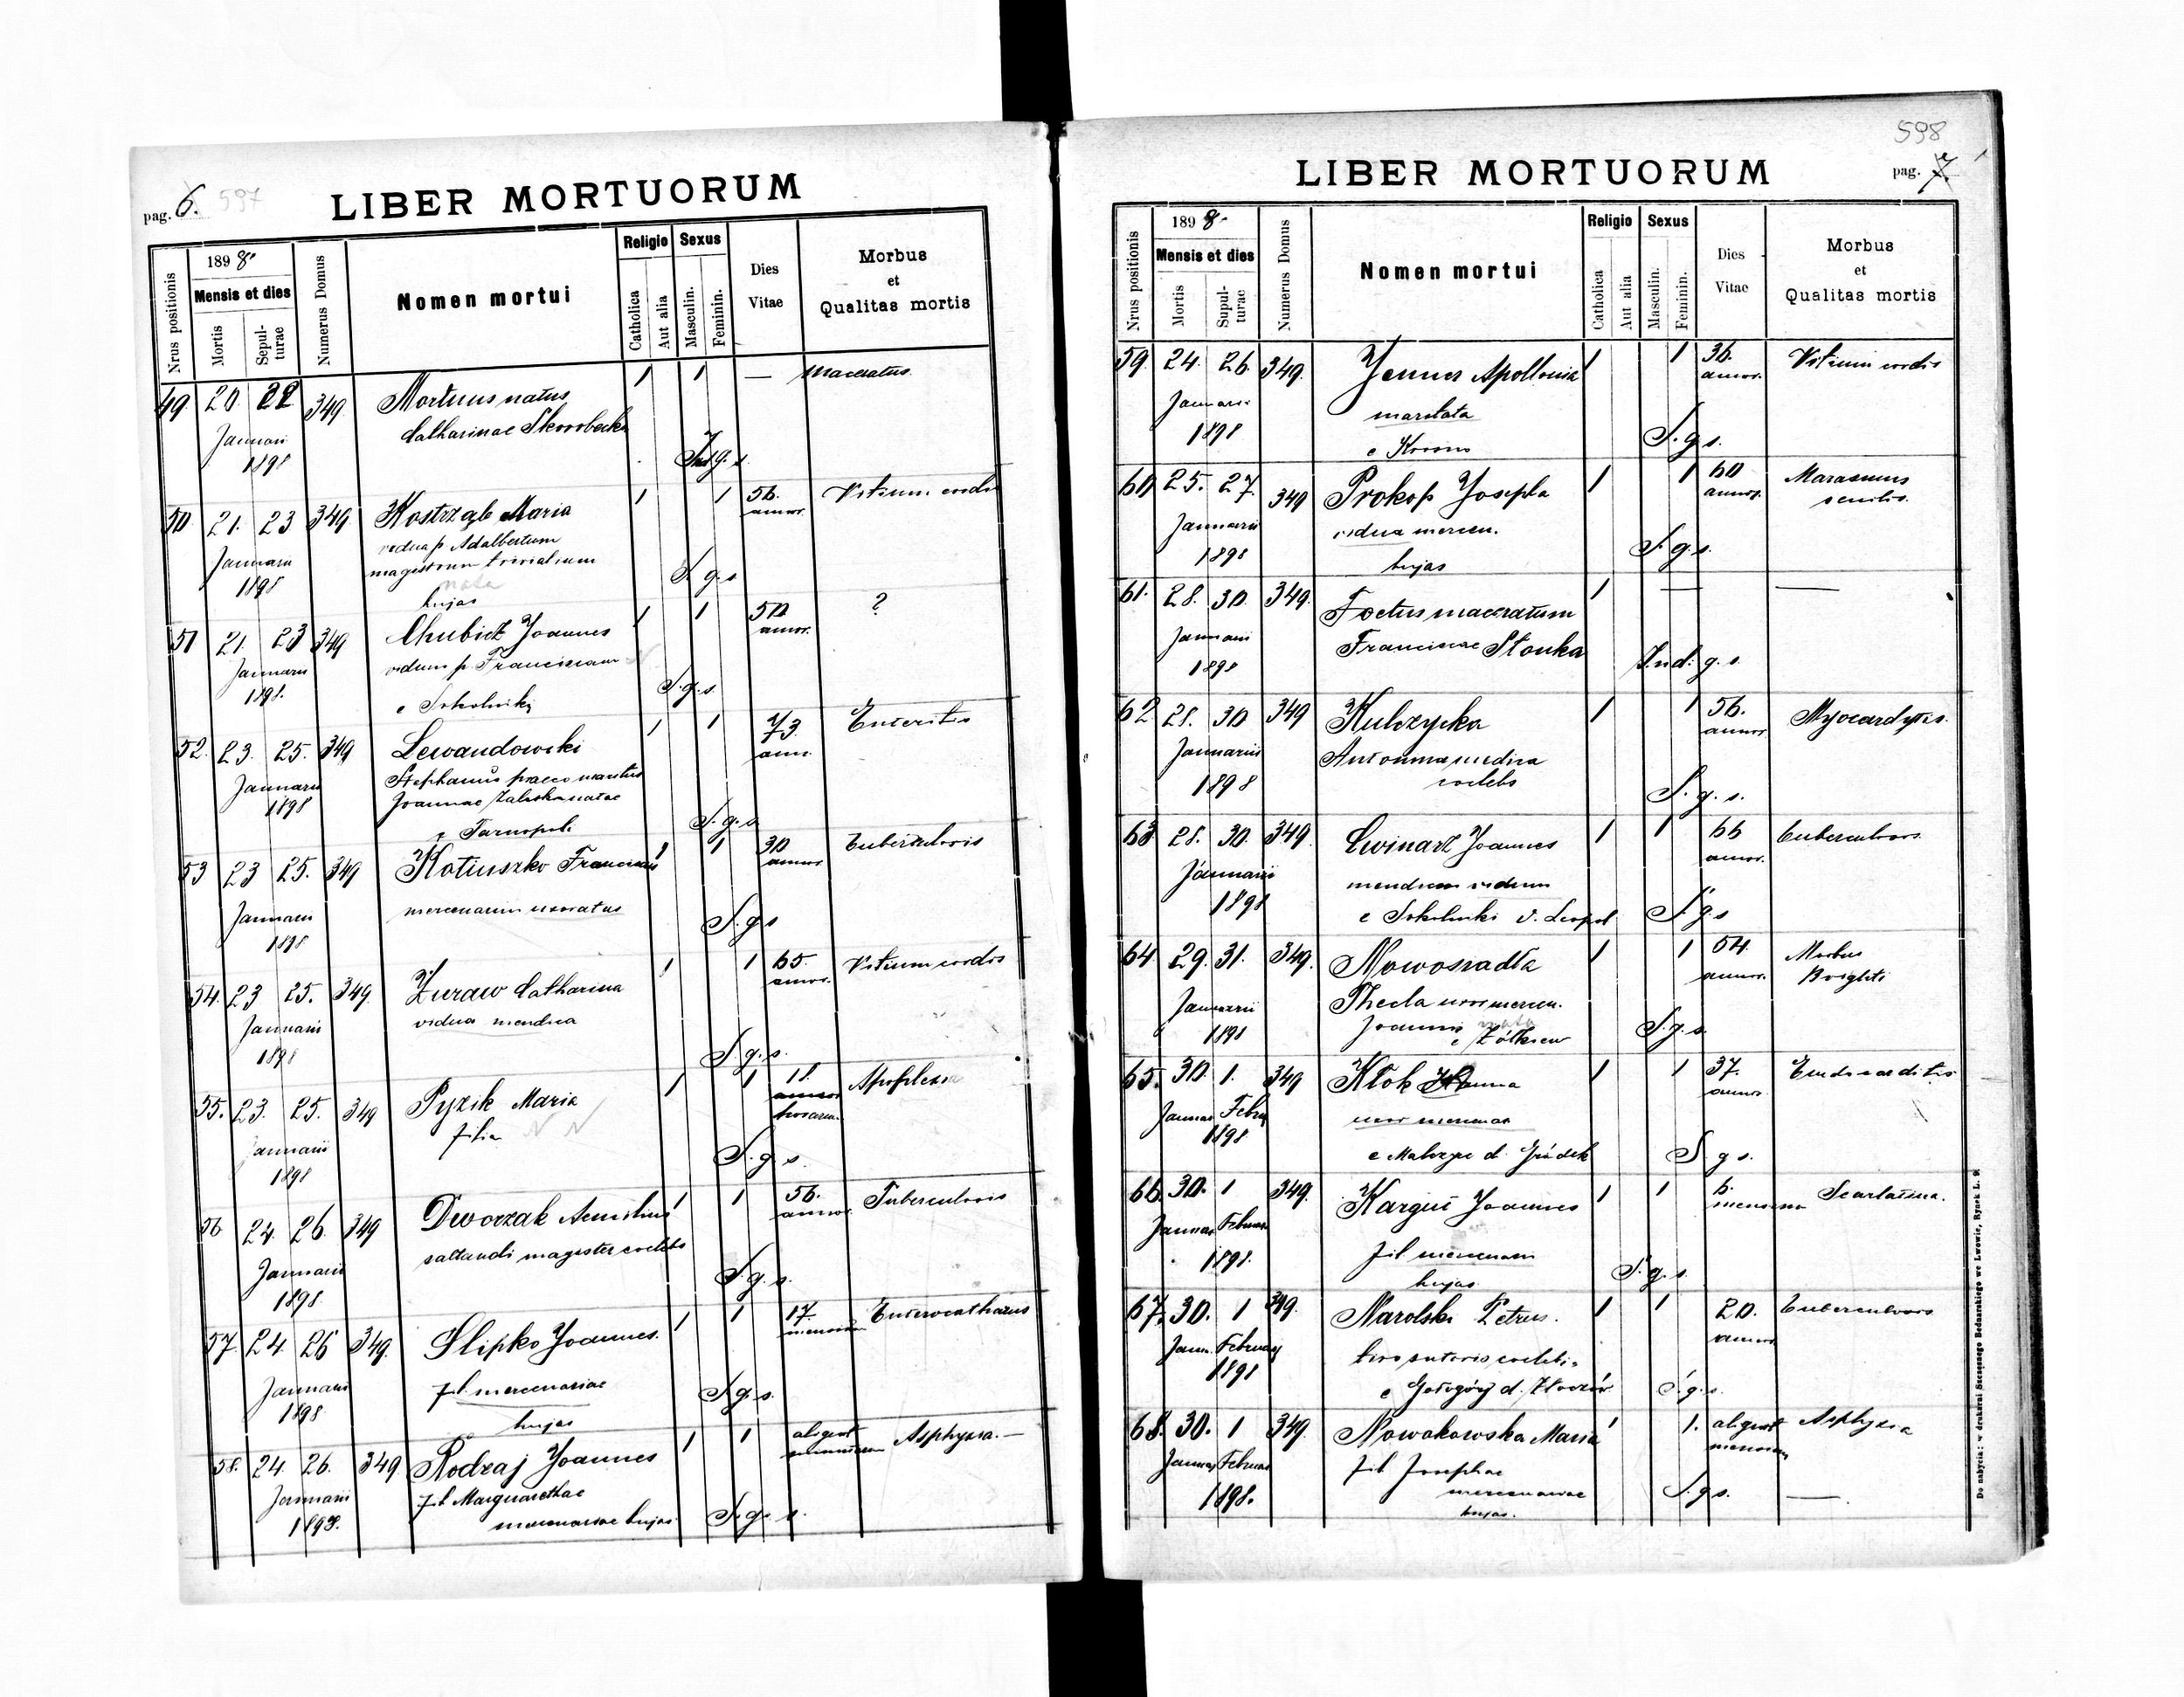 pag. 6. 597
LIBER MORTUORUM
Nrus positionis
1898.
Mensis et dies
Mortis
Sepul-
turae
Numerus Domus
Nomen mortui
Religio
Catholica
Aut alia
Sexus
Masculin.
Feminin.
Dies
Vitae
Morbus
et
Qualitas mortis
49. 20. 22 349 Mortuus natus 1 1 — maceratus.
Januarii Catharinae
1898
50. 21. 23 349 Kostrząb Maria 1 1 56. Vitium cordis
annor.
vidua p. Adalbertum
Januarii magistrum trivialium
1898 nata S. g. s.
hujas
51 21. 23 349 Chubicz Joannes 1 1 50 ?
annor.
Januarii viduus p. Franciscam
1898. e Sokolniki S. g. s.
52. 23. 25. 349 Lewandowski 1 1 73. Enteritis
ann.
Januarii Stephanus praeco maritus
1898 Joannae Zaleska natae
e Tarnopol S. g. s.
53 23 25. 349 Kotiuszko 1 1 30 Tuberculosis
annor
Januarii mercenarius uxoratus
1898 S. g. s
54. 23 25. 349 Żuraw Catharina 1 1 65. Vitium cordis
annor.
Januarii vidua mendica
1898 S. g. s.
55. 23. 25. 349 Pyzik Maria 1 1 18. Apoplexia
horarum
Januarii filia
1898 S. g. s.
56 24. 26. 349 Dworzak Aemilius 1 1 56. Tuberculosis
annor.
Januarii saltandi magister coelebs
1898 S. g. s.
57. 24 26 349. Slipko Joannes. 1 1 17. Enterocatharus
mensium
Januarii fil. mercenariae
1898 hujas S. g. s.
58. 24. 26. 349 Rodzaj Joannes 1 1 aliquot Asphyxia. —
Januarii fil. Margarethae
1898. mercenariae hujas S. g. s.
598
pag. 7.
LIBER MORTUORUM
Nrus positionis
1898.
Mensis et dies
Mortis
Sepul-
turae
Numerus Domus
Nomen mortui
Religio
Catholica
Aut alia
Sexus
Masculin.
Feminin.
Dies
Vitae
Morbus
et
Qualitas mortis
59. 24. 26. 349. Apollonia 1 1 36. Vitium cordis
annor.
Januarii maritata
1898 e S. g. s.
60 25. 27. 349 Prokop Josepha 1 1 60 Marasmus
annor. senilis.
Januarii vidua mercen.
1898 hujas S. g. s.
61. 28. 30. 349. Foetus maceratum 1 — —
Januarii Franciscae Słonka
1898 Ind. g. s.
62 28. 30 349 Kulczycka 1 1 56. Myocardytis.
annor.
Januarii Antonina medica
1898 coelebs S. g. s.
63 28. 30. 349. Cwinarz Joannes 1 1 66 Tuberculosis
annor.
Januarii mendicus viduus
1898 e Sokolniki d. Leopol S. g. s
64 29. 31. 349. Nowosradła 1 1 54. Morbus
annor. Brighti
Januarii Thecla uxor mercen.
1898 Joannis nata
e Żółkiew S. g. s.
65. 30. 1. 349 Kłok Anna 1 1 37. Endocarditis
annor.
Januar Febru uxor mercenar
1898
e d. Gródek S g s.
66. 30. 1 349. Karguć Joannes 1 1 6. Scarlatina.
mensium
Januar Februar
1898. fil. mercenarii
hujas S. g. s.
67. 30. 1 349. Narolski Petrus. 1 1 20. Tuberculosis
annor
Janu. Februar tiro sutoris coelebs
1898
e Gołogóry d. Złoczów S. g. s.
68. 30. 1 349. Nowakowska Maria 1 1. aliquot Asphyxia
Januar Februar fil. Josephae
mercenariae
1898. hujas. S. g. s. —.
Do nabycia: w drukarni Szczęsnego Bednarskiego we Lwowie, Rynek L. 9.